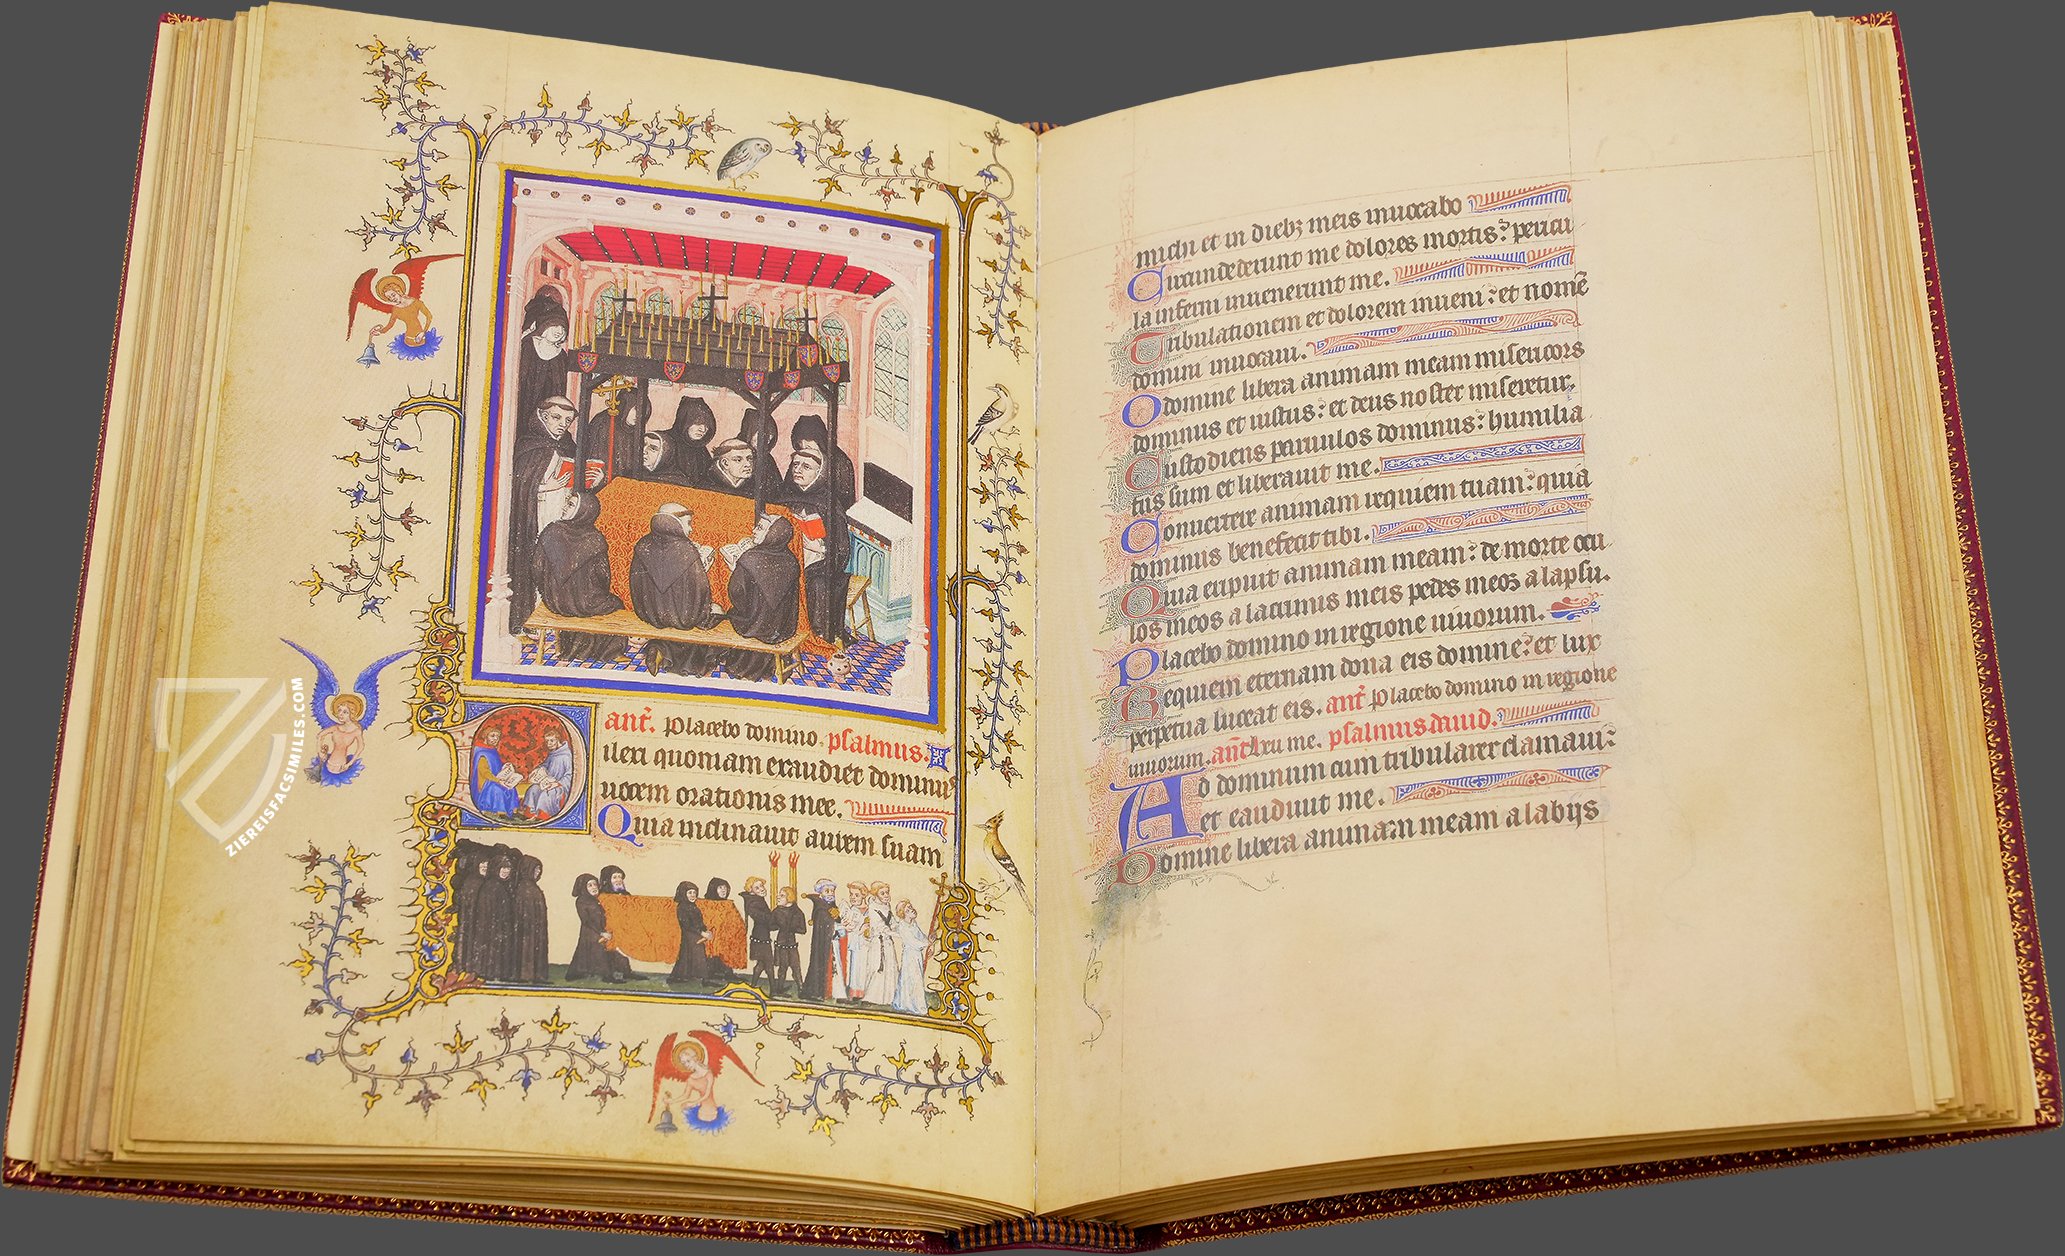 ant. Placebo domino. psalmus.
ilexi quoniam exaudiet dominus
uocem orationis mee.
Quia inclinauit aurem suam
michi et in dieb; meis inuocabo
Circundederunt me dolores mortis: pericu
la inferni inuenerunt me.
Tribulationem et dolorem inueni: et nomē
domini inuocaui.
O domine libera animam meam misericors
dominus et iustus: et deus noster miseretur.
Custodiens paruulos dominus: humilia
tus sum et liberauit me.
Conuertere animam requiem tuam: quia
dominus benefecit tibi.
Quia eripuit animam meam: de morte ocu
los meos a lacrimis meis pedes meoꝝ a lapsu.
Placebo domino in regione uiuorum.
Requiem eternam dona eis domine: et lux
perpetua luceat eis. ant Placebo domino in regione
uiuorum. ant heu me. psalmus dauid.
Ad dominum cum tribularer clamaui:
et exaudiuit me.
Domine libera animam meam a labijs
ZIEREISFACSIMILES.COM